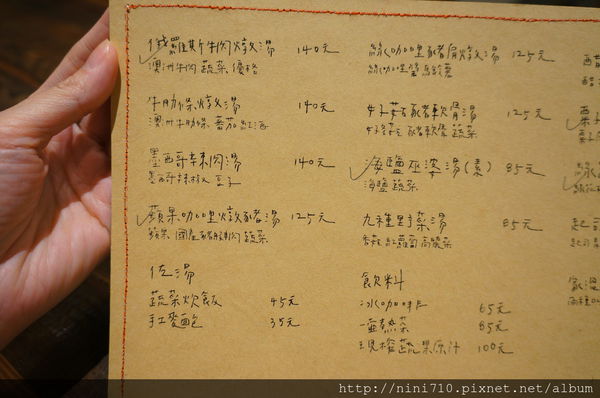 俄羅斯牛肉燉湯 140元
澳洲牛肉 蔬菜 優格
牛肋條燉湯 140元
澳洲牛肋條 蕃茄 紅酒
墨西哥辣肉湯 140元
墨西哥辣椒 豆子
蘋果咖哩燉豬湯 125元
蘋果 國產豬肉 蔬菜
佐湯
蔬菜炊飯 45元
手工麥麵包 35元
綠咖哩豬肩燉湯 125元
綠咖哩 馬鈴薯
牛蒡豬軟骨湯 125元
牛蒡 豬軟骨 蔬菜
海鹽巫婆湯(素) 85元
海鹽 蔬菜
九種野菜湯 85元
香菇 紅蘿蔔 高麗菜
飲料
冰咖啡 65元
一壺熱茶 85元
現榨蔬果原汁 100元
http://nini710.pixnet.net/album